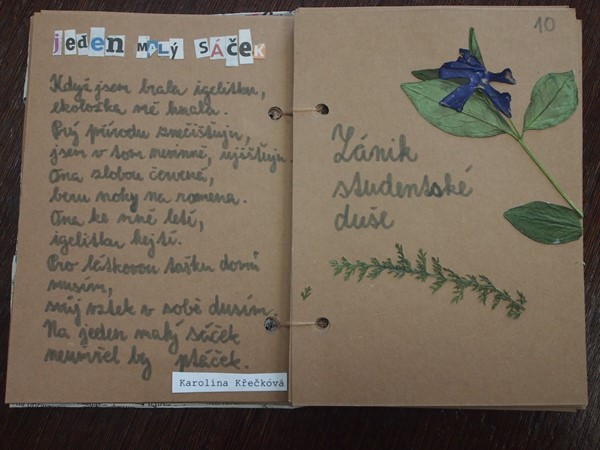 jeden malý sáček
Když jsem brala igelitku,
ekoložka mě hnala.
Prý přírodu znečišťuju,
jsem v tom nevinně, ujišťuju.
Ona zlobou červená,
beru nohy na ramena.
Ona ke mně letí,
igelitku hejtí.
Pro látkovou tašku domů
musím,
svůj vztek v sobě dusím.
Na jeden malý sáček
neumřel by ptáček.
Karolína Křečková
10
Zánik
studentské
duše